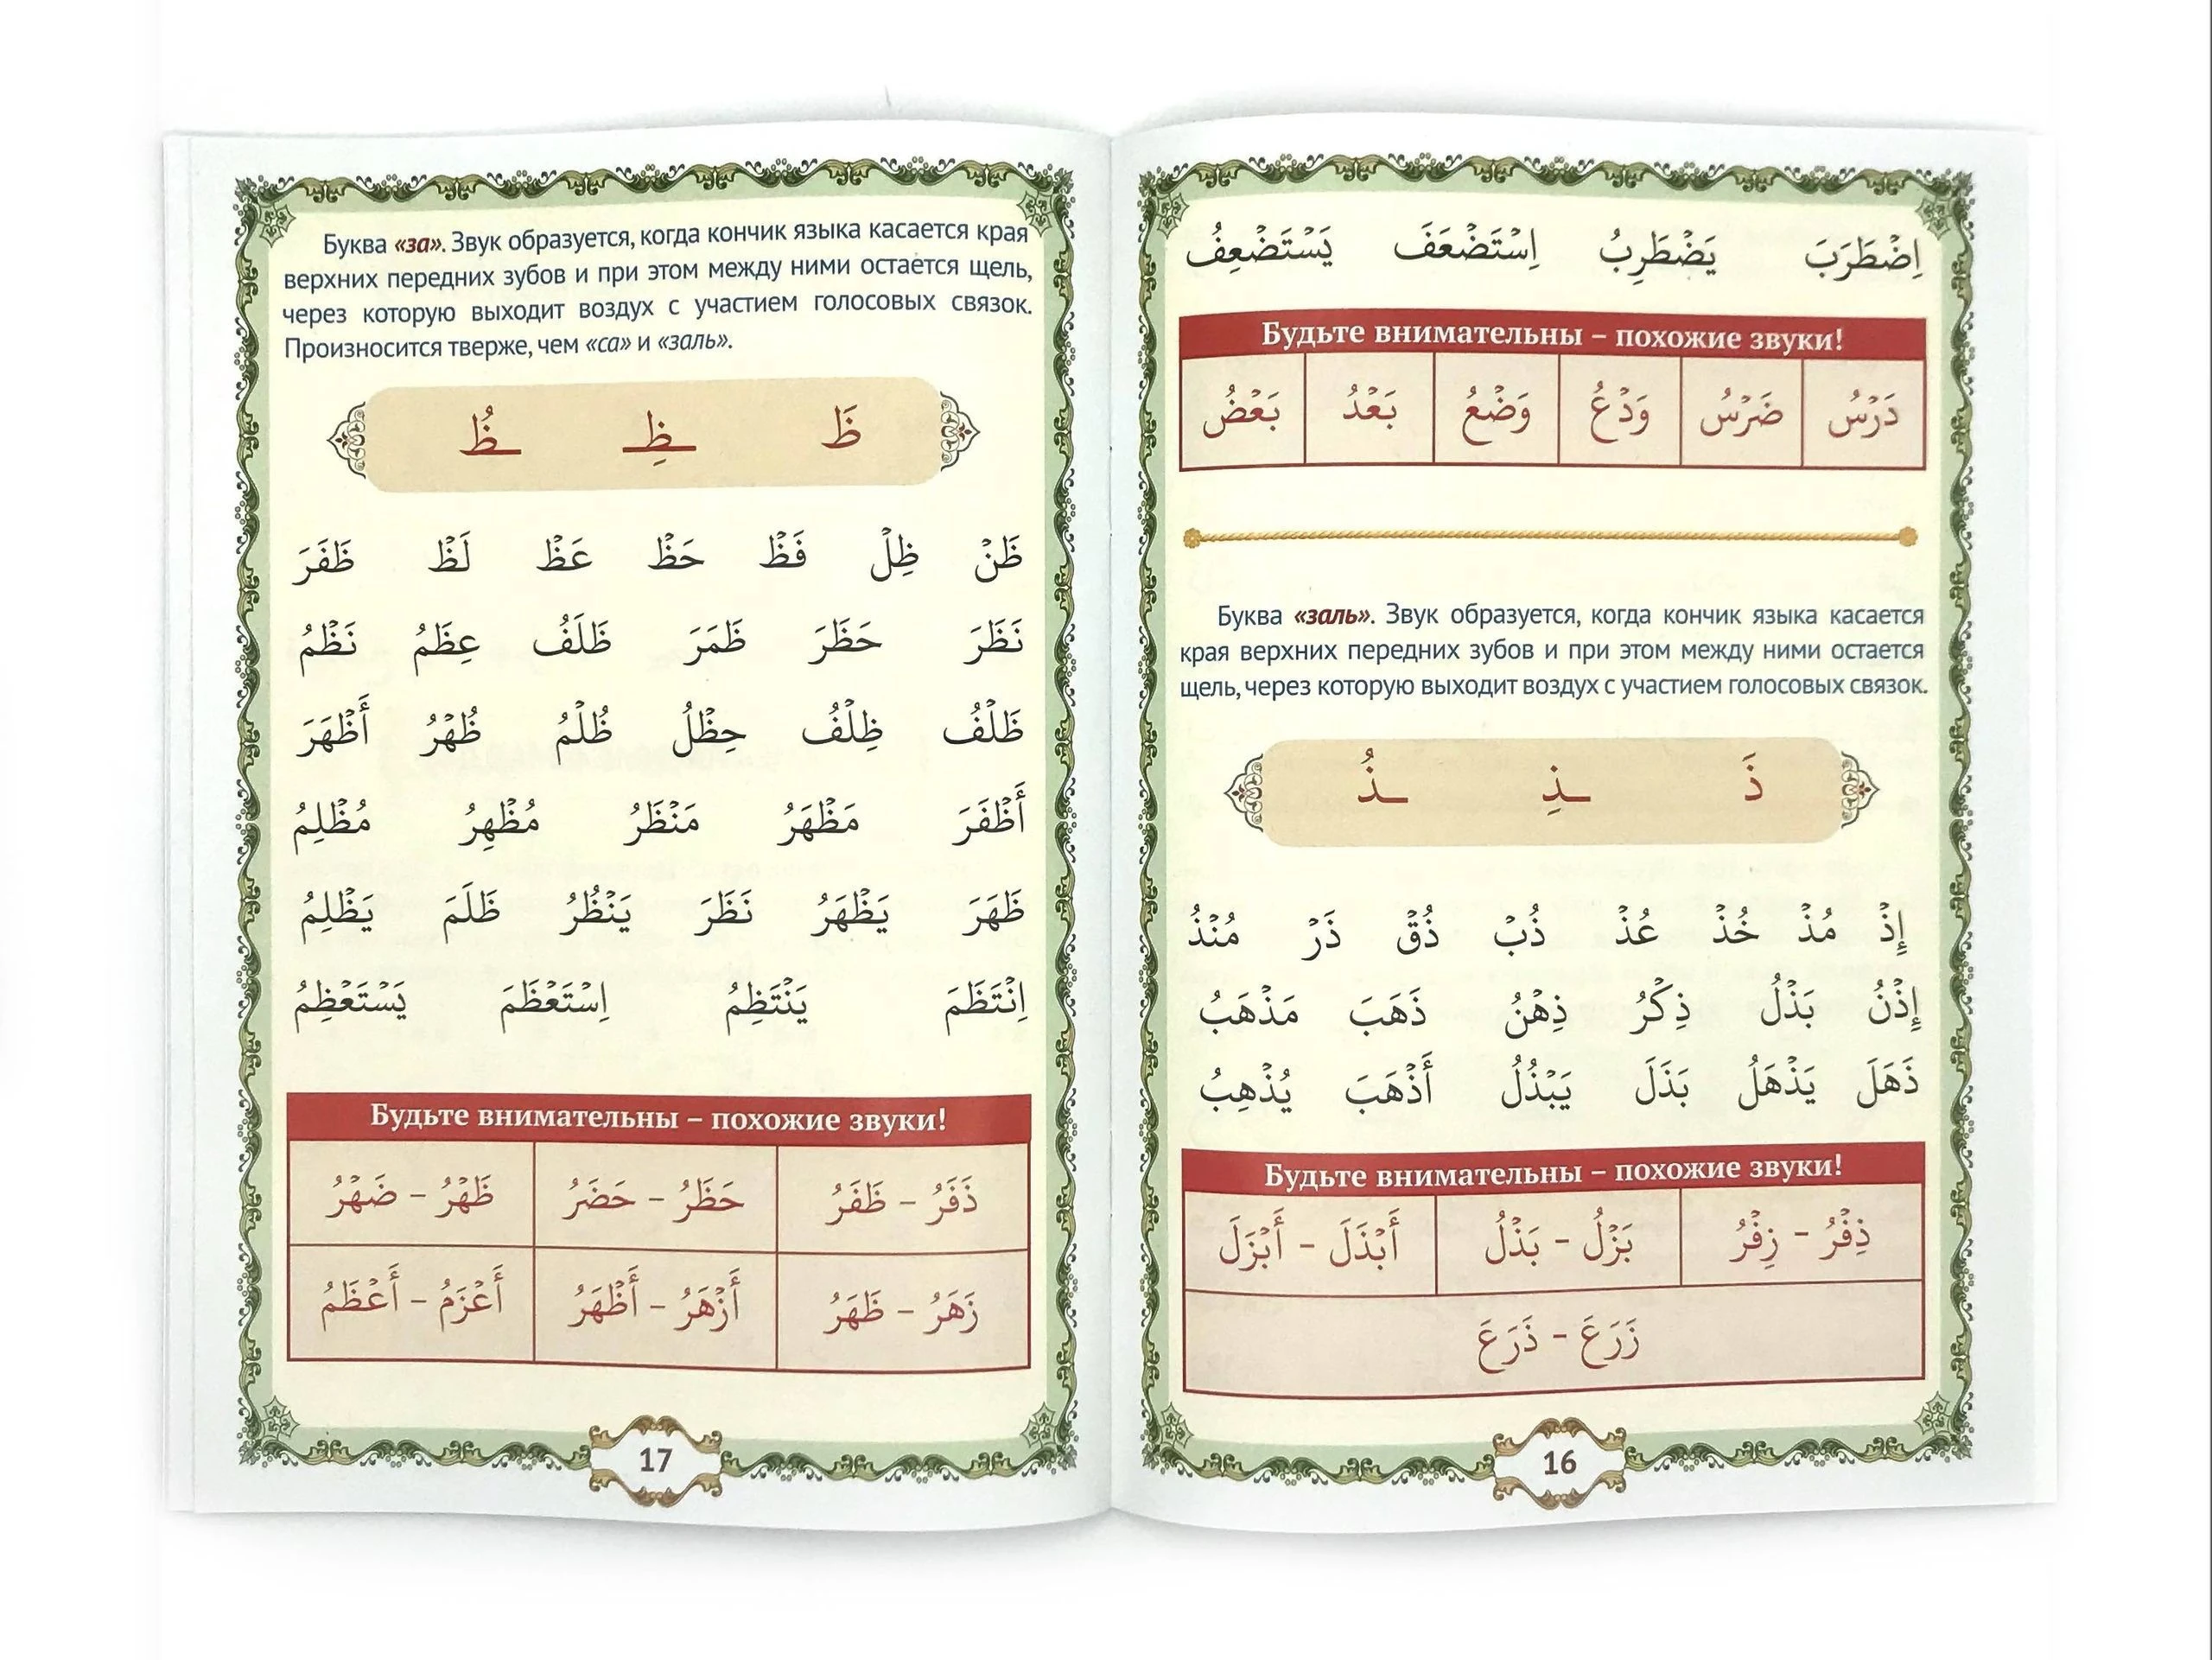 اِضْطَرَبَ يَضْطَرِبُ اِسْتَضْعَفَ يَسْتَضْعِفُ
Будьте внимательны – похожие звуки!
دَرْسُ ضَرْسُ وَدْعُ وَضْعُ بَعْدُ بَعْضُ
Буква «заль». Звук образуется, когда кончик языка касается
края верхних передних зубов и при этом между ними остается
щель, через которую выходит воздух с участием голосовых связок.
ذَ ـذِ ـذُ
إِذْ مُذْ خُذْ عُذْ ذُبْ ذُقْ ذَرْ مُنْذُ
إِذْنُ بَذْلُ ذِكْرُ ذِهْنُ ذَهَبَ مَذْهَبُ
ذَهَلَ يَذْهَلُ بَذَلَ يَبْذُلُ أَذْهَبَ يُذْهِبُ
Будьте внимательны – похожие звуки!
ذِفْرُ – زِفْرُ بَزْلُ – بَذْلُ أَبْذَلَ – أَبْزَلَ
زَرَعَ – ذَرَعَ
16
Буква «за». Звук образуется, когда кончик языка касается края
верхних передних зубов и при этом между ними остается щель,
через которую выходит воздух с участием голосовых связок.
Произносится тверже, чем «са» и «заль».
ظَ ـظِ ـظُ
ظَنْ ظِلْ فَظْ حَظْ عَظْ لَظْ ظَفَرَ
نَظَرَ حَظَرَ ظَمَرَ ظَلَفُ عِظَمُ نَظْمُ
ظَلْفُ ظِلْفُ حِظْلُ ظُلْمُ ظُهْرُ أَظْهَرَ
أَظْفَرَ مَظْهَرُ مَنْظَرُ مُظْهِرُ مُظْلِمُ
ظَهَرَ يَظْهَرُ نَظَرَ يَنْظُرُ ظَلَمَ يَظْلِمُ
اِنْتَظَمَ يَنْتَظِمُ اِسْتَعْظَمَ يَسْتَعْظِمُ
Будьте внимательны – похожие звуки!
ذَفَرُ – ظَفَرُ حَظَرُ – حَضَرُ ظَهْرُ – ضَهْرُ
زَهَرُ – ظَهَرُ أَزْهَرُ – أَظْهَرُ أَعْزَمُ – أَعْظَمُ
17